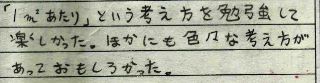 「1㎡あたり」という考え方を勉強して
楽しかった。ほかにも色々な考え方が
あっておもしろかった。